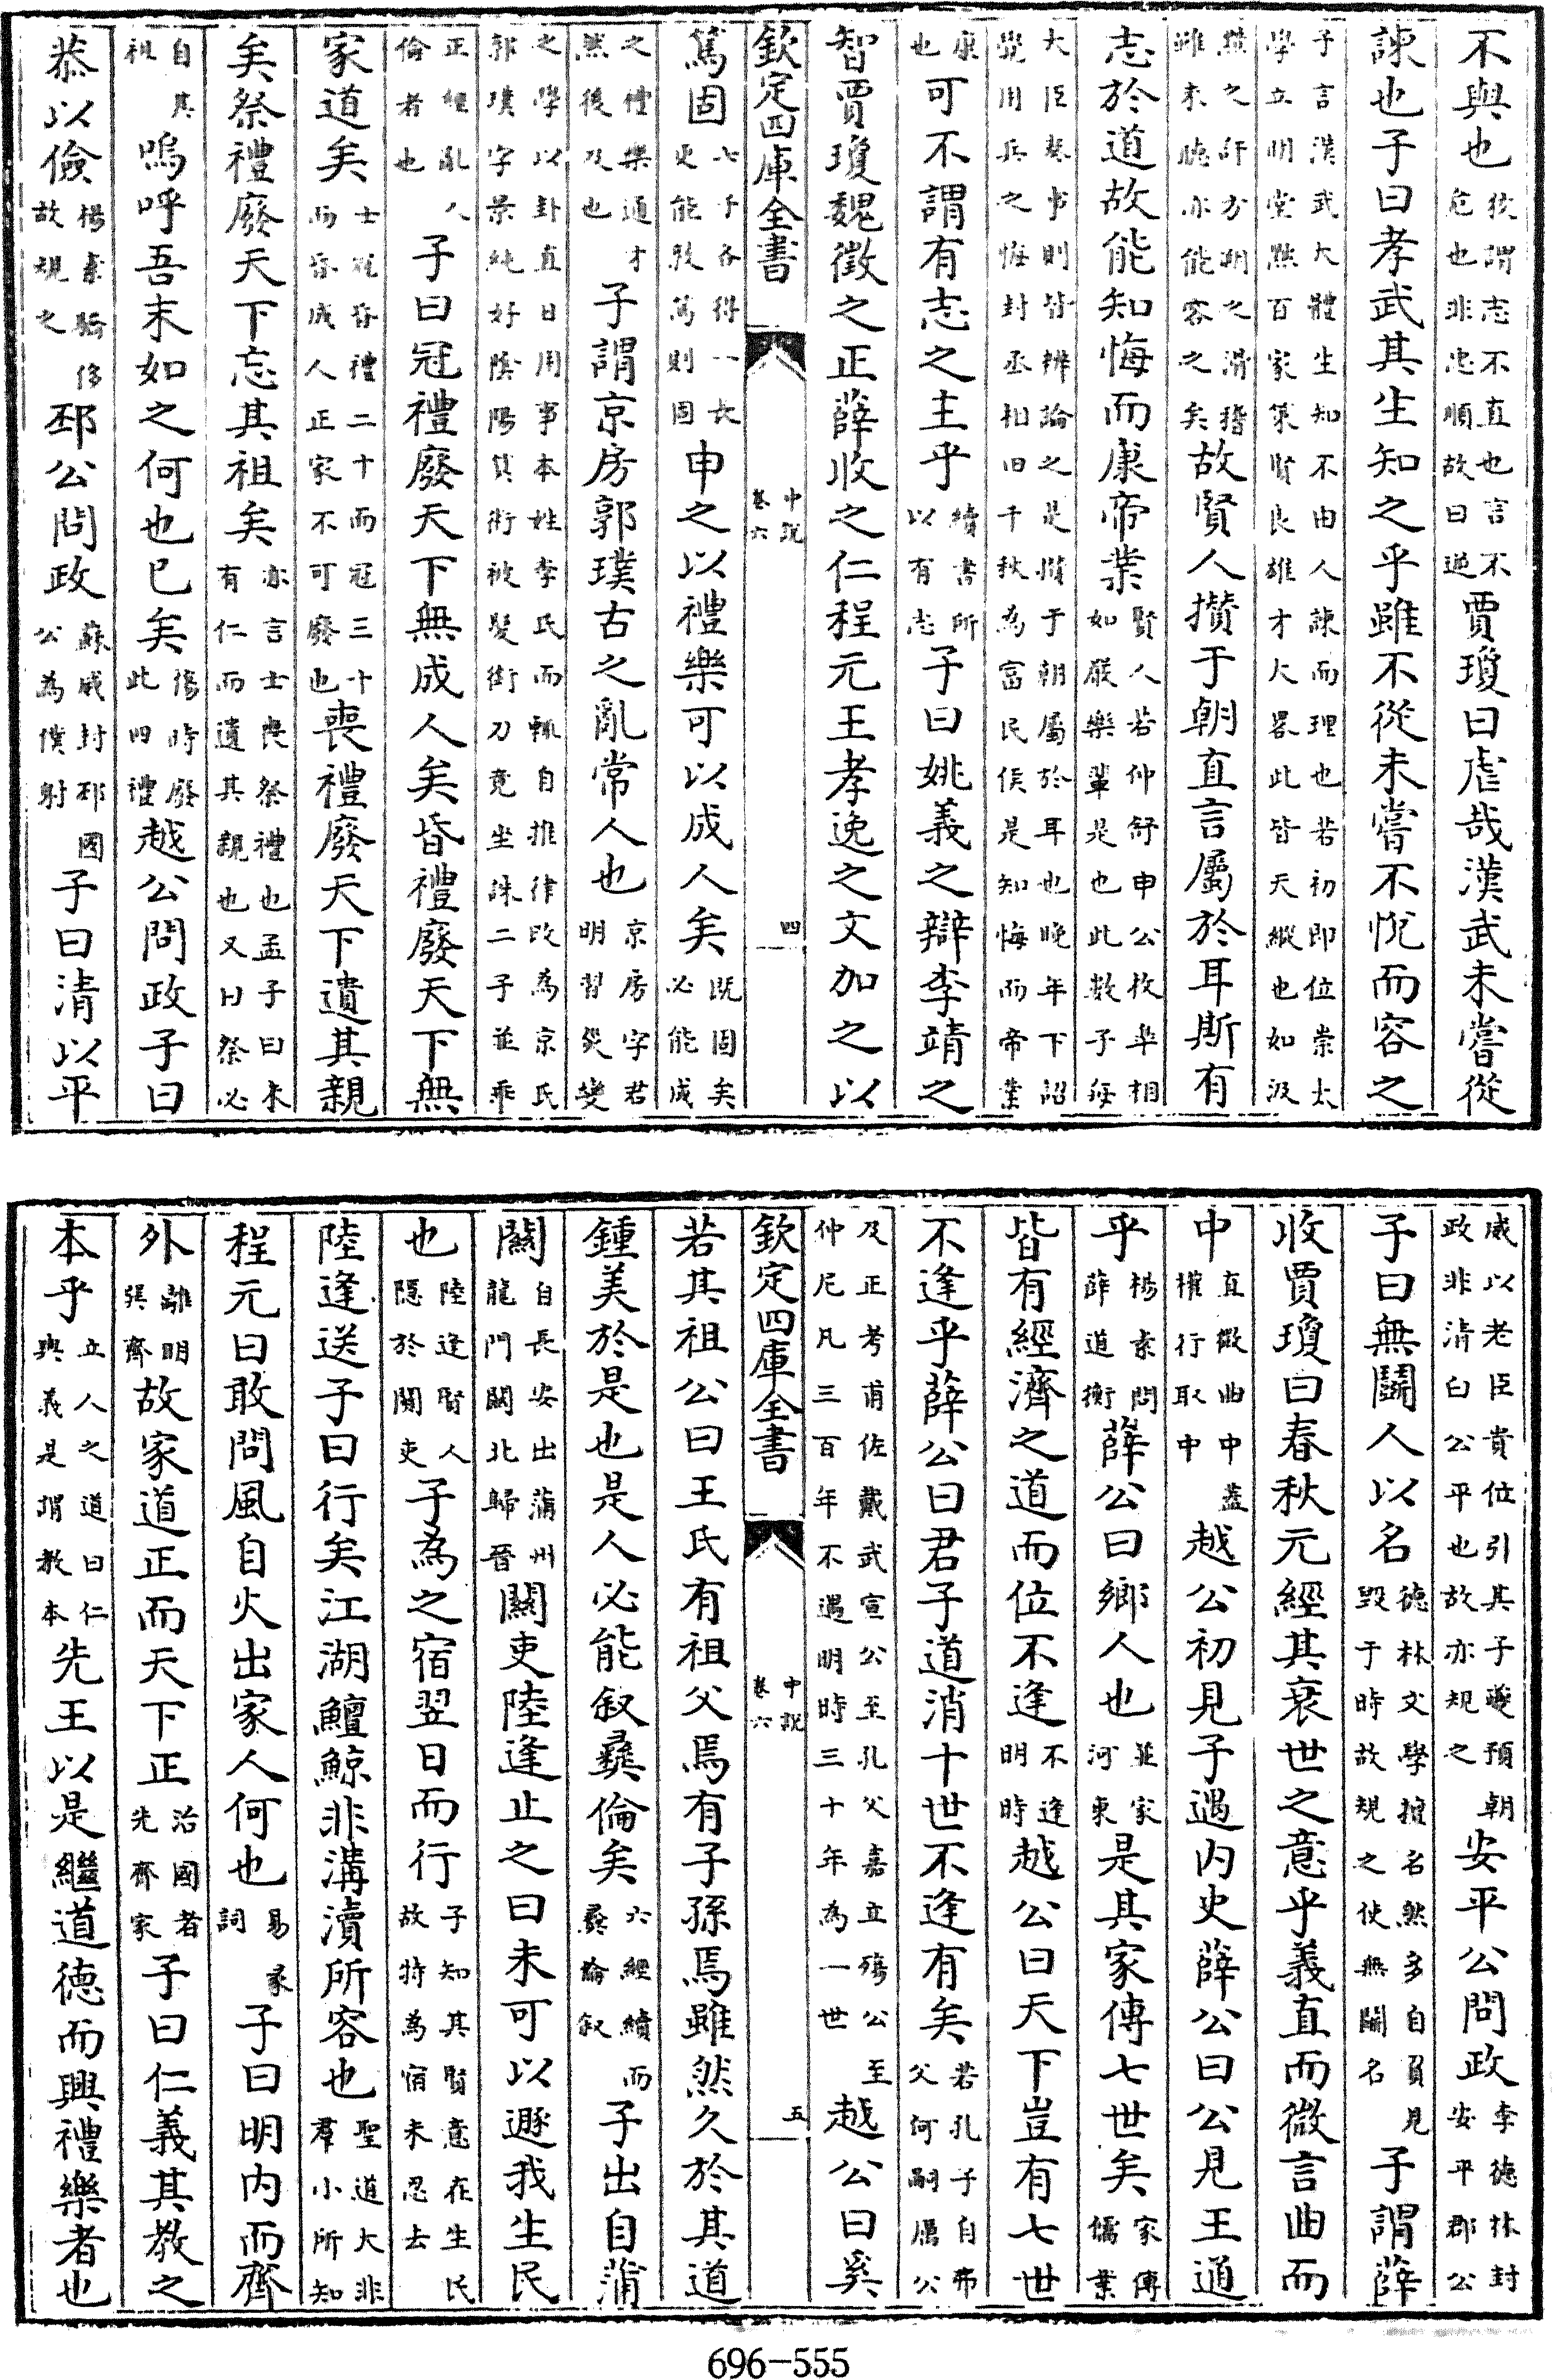 不與也彼謂志不直也言不危也非忠順故曰逆賈瓊曰虐哉漢武未嘗從
諫也子曰孝武其生知之乎雖不從未嘗不悅而容之
子言漢武大體生知不由人諫而理也若初即位崇太學立明堂黜百家策賢良雄才大畧此皆天縱也如汲
黯之訐方朔之滑稽雖未聽亦能容之矣故賢人攢于朝直言屬於耳斯有
志於道故能知悔而康帝業賢人若仲舒申公枚皐相如嚴樂輩是也此數子每
大臣奏事則皆辨論之是攢于朝屬於耳也晚年下詔覺用兵之悔封丞相田千秋為富民侯是知悔而帝業
康也可不謂有志之主乎續書所以有志子曰姚義之辯李靖之
智賈瓊魏徵之正薛收之仁程元王孝逸之文加之以
欽定四庫全書 中說卷六 四
篤固七子各得一長更能敦篤則固申之以禮樂可以成人矣既固矣必能成
之禮樂通才然後及也子謂京房郭璞古之亂常人也京房字君明習災變
之學以卦直日用事本姓李氏而輒自推律改為京氏郭璞字景純好陰陽貨術被髮銜刀竟坐誅二子並乖
正經亂人倫者也子曰冠禮廢天下無成人矣昏禮廢天下無
家道矣士冠昏禮二十而冠三十而昏成人正家不可廢也喪禮廢天下遺其親
矣祭禮廢天下忘其祖矣亦言士喪祭禮也孟子曰未有仁而遺其親也又曰祭必
自其祖嗚呼吾末如之何也已矣傷時廢此四禮越公問政子曰
恭以儉楊素驕侈故規之邳公問政蘇威封邳國公為僕射子曰清以平
威以老臣貴位引其子夔預朝政非清白公平也故亦規之安平公問政李德林封安平郡公
子曰無鬭人以名德林文學擅名然多自負見毀于時故規之使無鬭名子謂薛
收賈瓊曰春秋元經其衰世之意乎義直而微言曲而
中直微曲中蓋權行取中越公初見子遇內史薛公曰公見王通
乎楊素問薛道衡薛公曰鄉人也並家河東是其家傳七世矣家傳儒業
皆有經濟之道而位不逢不逢明時越公曰天下豈有七世
不逢乎薛公曰君子道消十世不逢有矣若孔子自弗父何嗣厲公
及正考甫佐戴武宣公至孔父嘉立殤公至仲尼凡三百年不遇明時三十年為一世越公曰奚
欽定四庫全書 中說卷六 五
若其祖公曰王氏有祖父焉有子孫焉雖然久於其道
鍾美於是也是人必能叙彝倫矣六經續而彝倫叙子出自蒲
關自長安出蒲州龍門關北歸晉關吏陸逢止之曰未可以遯我生民
也陸逢賢人隱於關吏子為之宿翌日而行子知其賢意在生民故特為宿未忍去
陸逢送子曰行矣江湖鱣鯨非溝瀆所容也聖道大非羣小所知
程元曰敢問風自火出家人何也易彖詞子曰明內而齊
外離明巽齊故家道正而天下正治國者先齊家子曰仁義其教之
本乎立人之道曰仁與義是謂教本先王以是繼道德而興禮樂者也
696-555